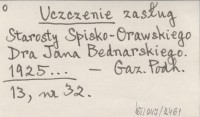 Uczczenie zasług
Starosty Spisko-Orawskiego
Dra Jana Bednarskiego.
1925... — Gaz. Podh.
13, nr 32.